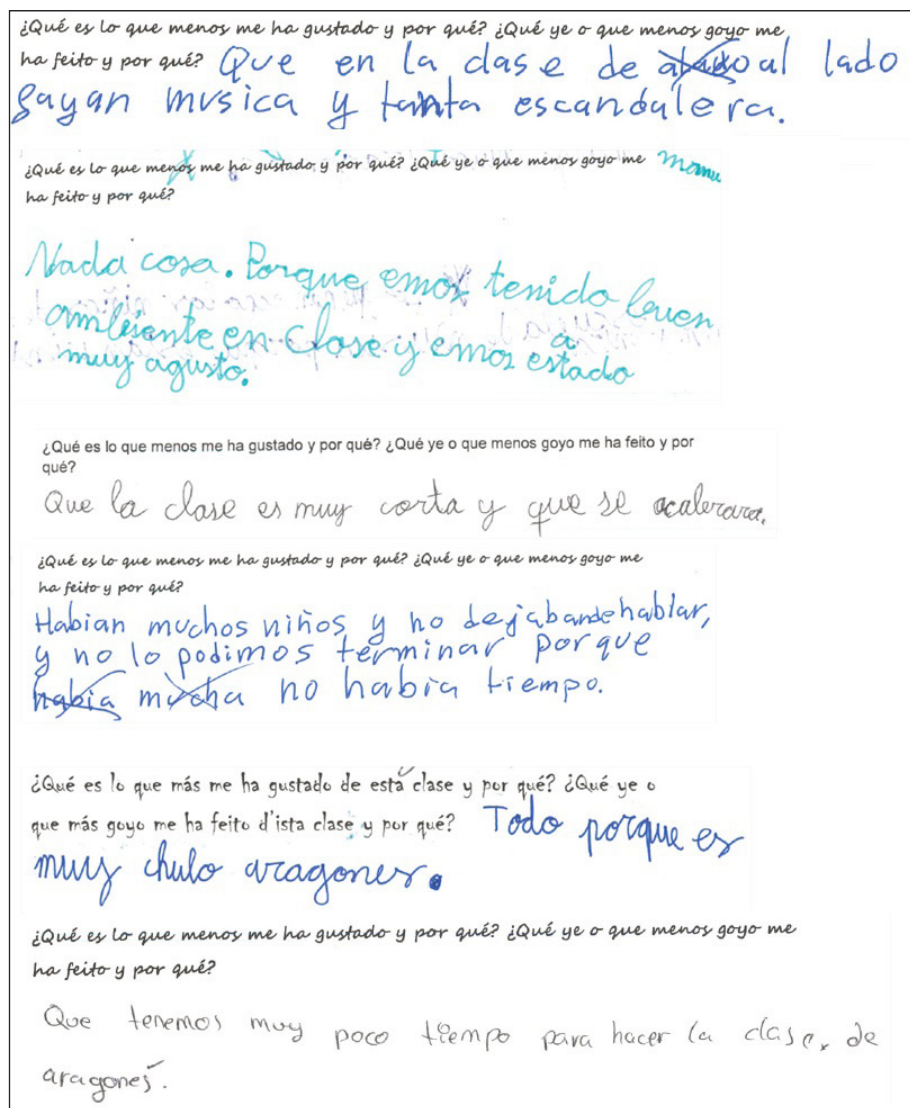 ¿Qué es lo que menos me ha gustado y por qué? ¿Qué ye o que menos goyo me
ha feito y por qué? Que en la clase de al lado
gayan musica y tanta escandalera.
¿Qué es lo que menos me ha gustado y por qué? ¿Qué ye o que menos goyo me
ha feito y por qué?
Nada cosa. Porque emos tenido buen
ambiente en clase y emos estado
muy agusto.
¿Qué es lo que menos me ha gustado y por qué? ¿Qué ye o que menos goyo me ha feito y por
qué?
Que la clase es muy corta y que se acalerara.
¿Qué es lo que menos me ha gustado y por qué? ¿Qué ye o que menos goyo me
ha feito y por qué?
Habian muchos niños y no dejaban de hablar,
y no lo podimos terminar porque
había mucha no habia tiempo.
¿Qué es lo que más me ha gustado de esta clase y por qué? ¿Qué ye o
que más goyo me ha feito d'ista clase y por qué? Todo porque es
muy chulo aragones.
¿Qué es lo que menos me ha gustado y por qué? ¿Qué ye o que menos goyo me
ha feito y por qué?
Que tenemos muy poco tiempo para hacer la clase, de
aragonés.